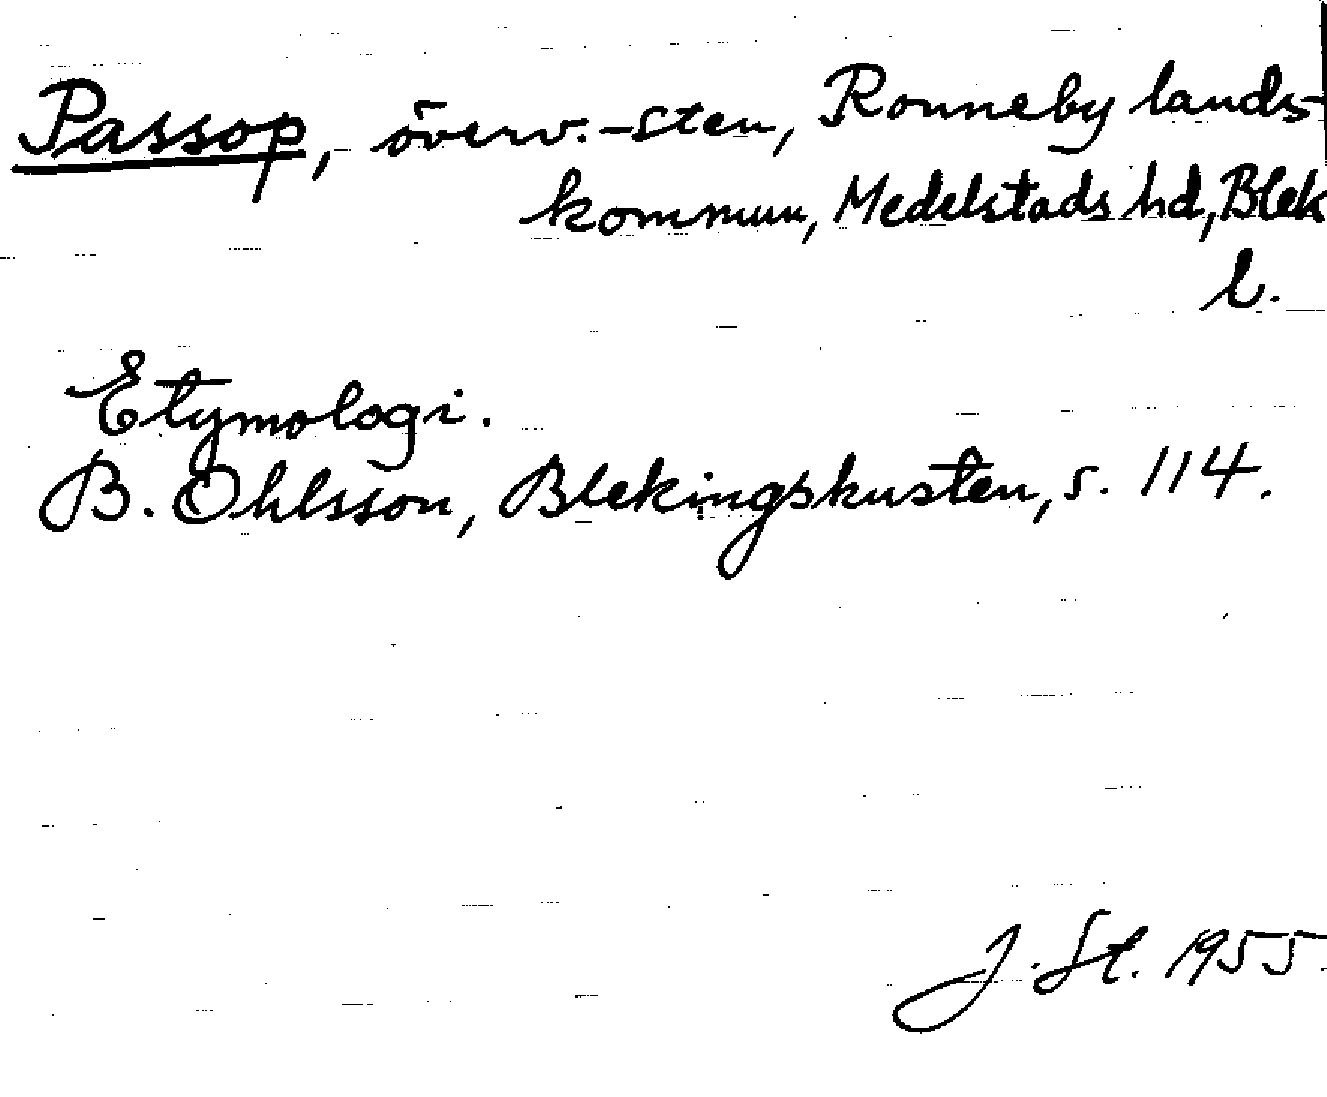 Passop, överv. -sten, Ronneby lands-
kommun, Medelstads hd, Blek
l.
Etymologi.
B. Ohlsson, Blekingskusten, s. 114.
J. St. 1955